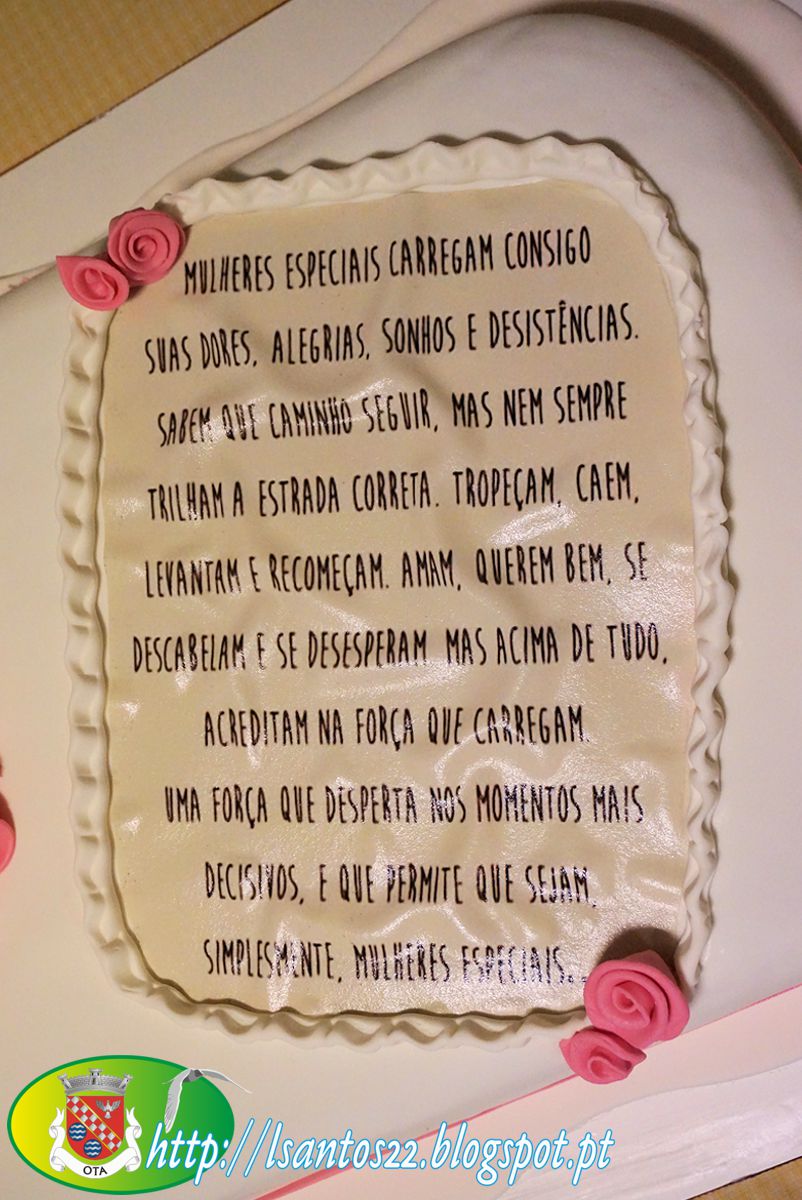 MULHERES ESPECIAIS CARREGAM CONSIGO
SUAS DORES, ALEGRIAS, SONHOS E DESISTÊNCIAS.
SABEM QUE CAMINHO SEGUIR, MAS NEM SEMPRE
TRILHAM A ESTRADA CORRETA. TROPEÇAM, CAEM,
LEVANTAM E RECOMEÇAM. AMAM, QUEREM BEM, SE
DESCABELAM E SE DESESPERAM MAS ACIMA DE TUDO,
ACREDITAM NA FORÇA QUE CARREGAM.
UMA FORÇA QUE DESPERTA NOS MOMENTOS MAIS
DECISIVOS, E QUE PERMITE QUE SEJAM,
SIMPLESMENTE, MULHERES ESPECIAIS...
OTA
http://lsantos22.blogspot.pt